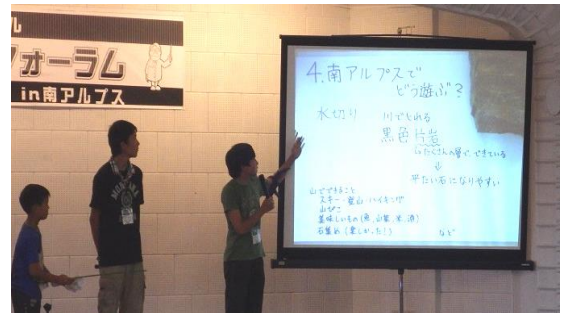 ル
フォーラム
in南アルプス
4.南アルプスで
どう遊ぶ?
水切り 川でとれる
黒色片岩
たくさんの層で、できている
⇓
平たい石になりやすい
山でできること
スキー・登山・ハイキング
山びこ
美味しいもの(魚、山菜、米、酒)
石集め(楽しかった!)
など